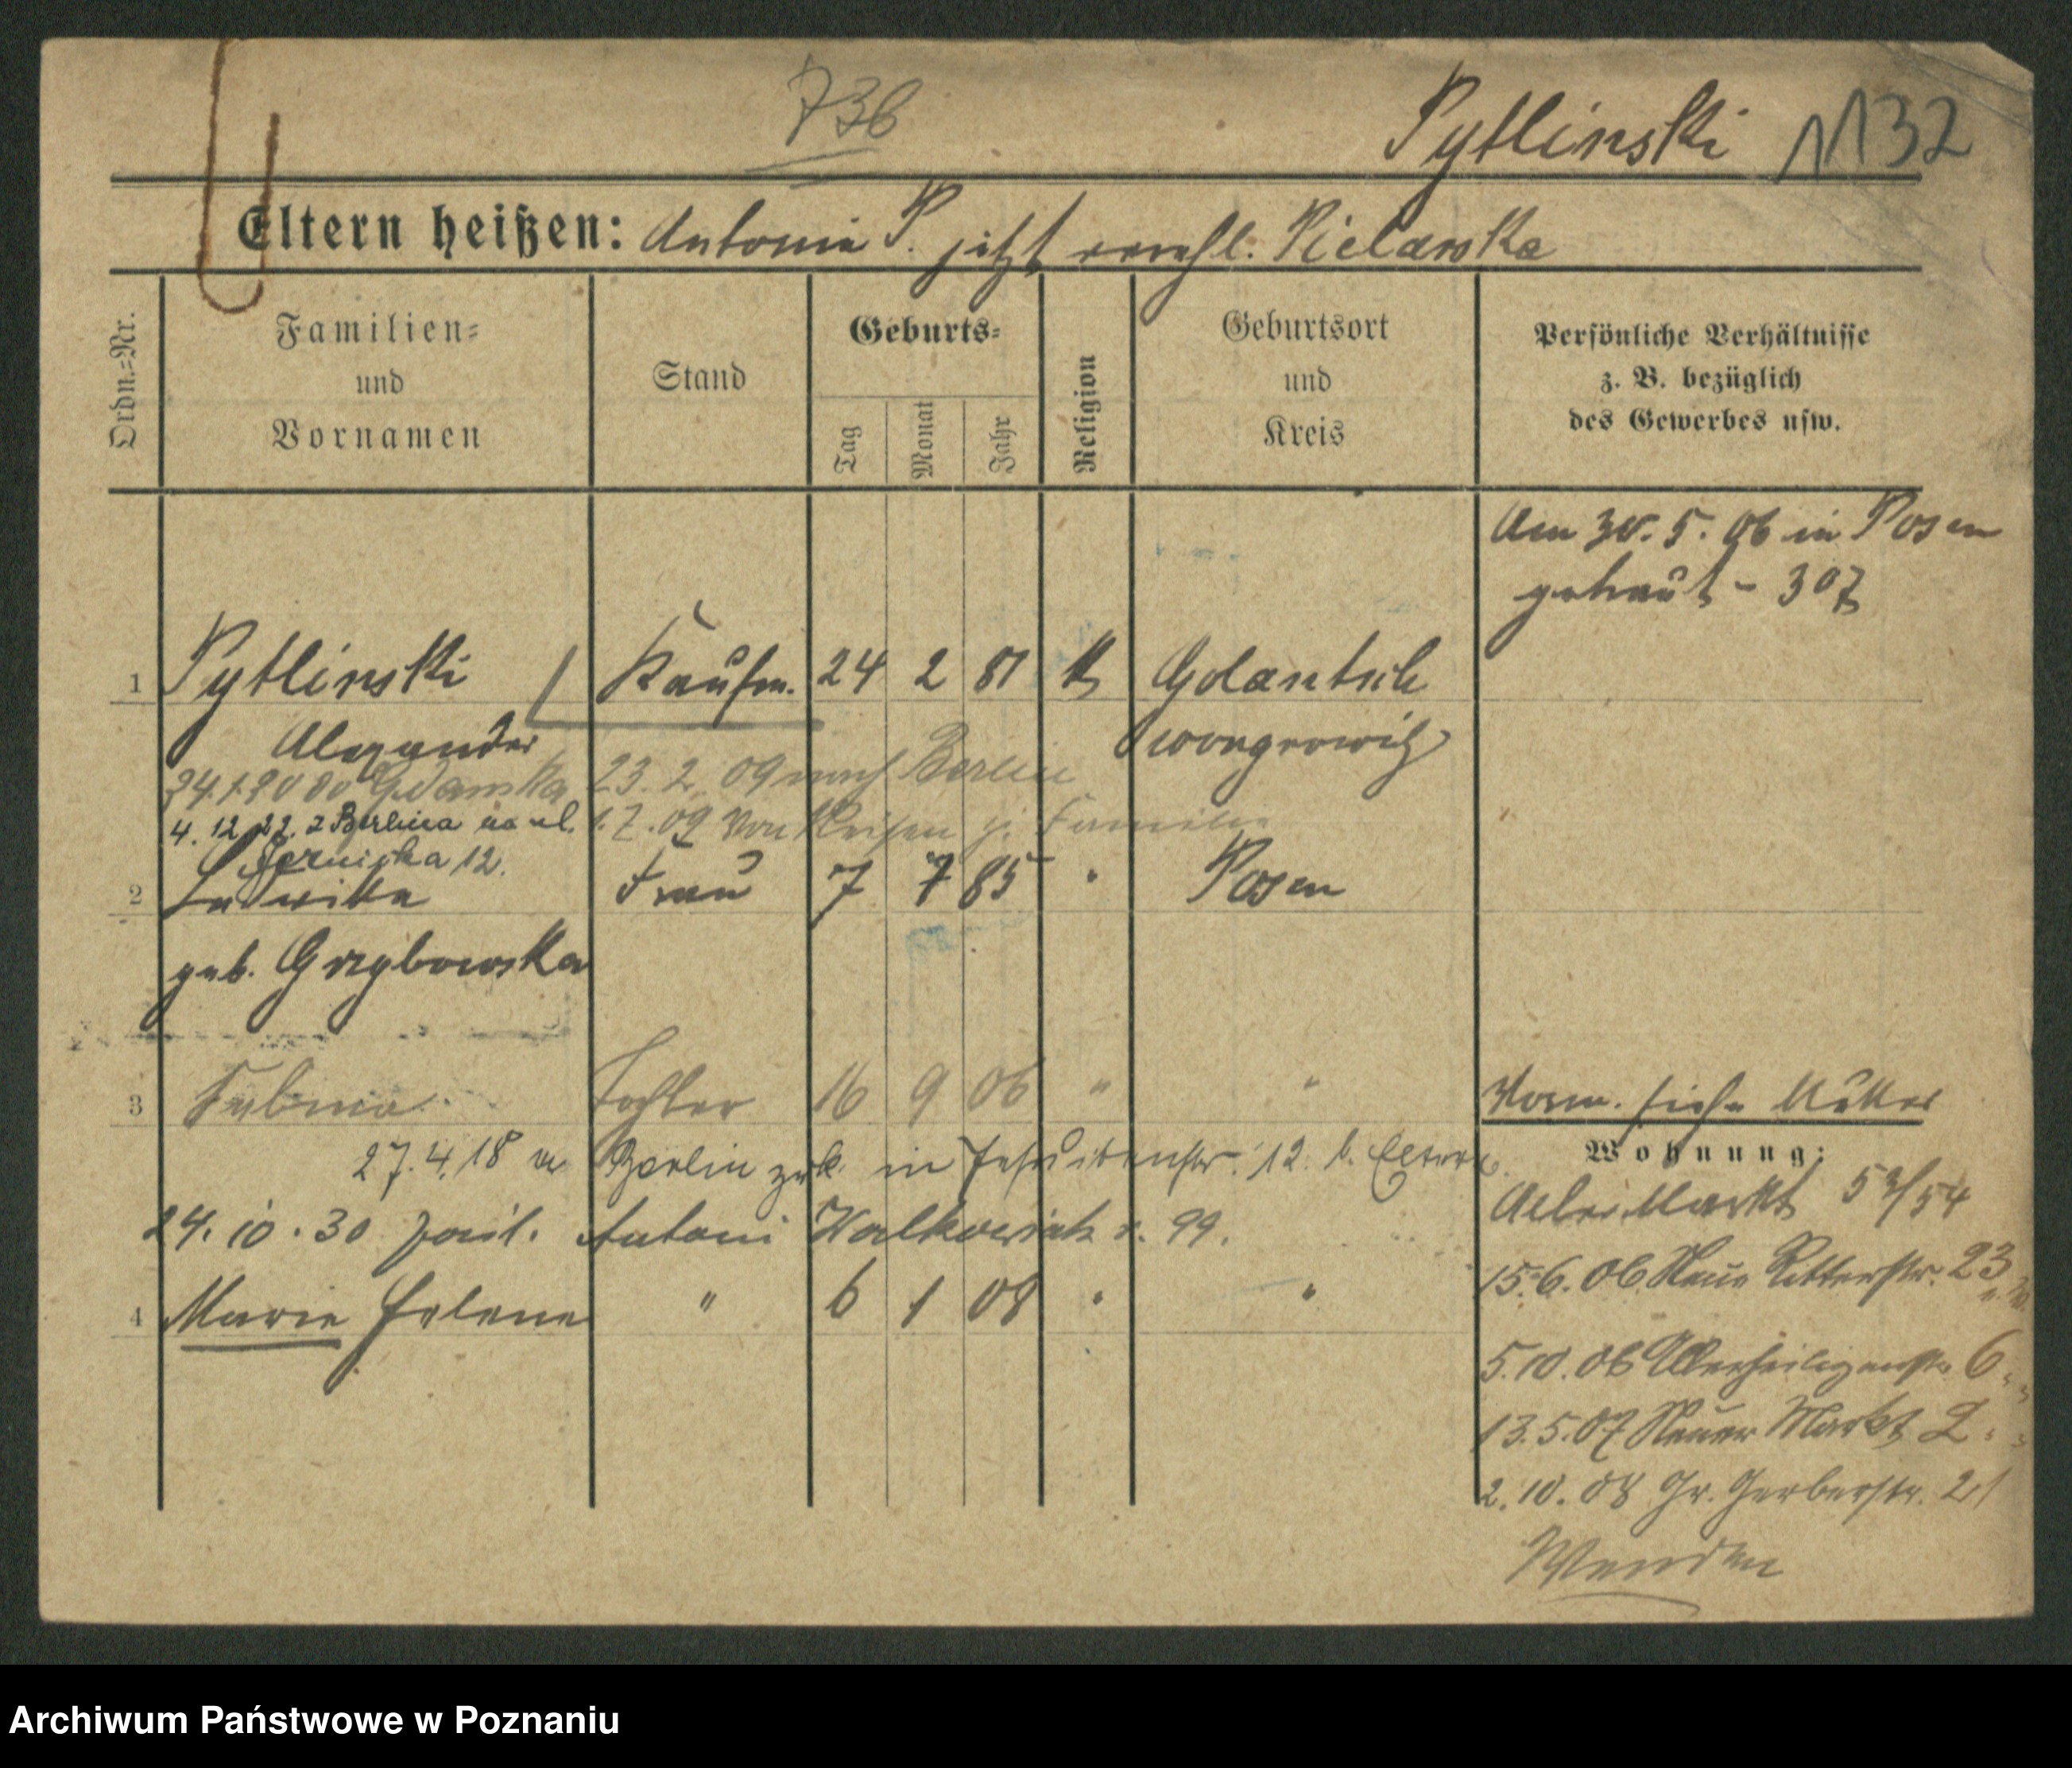 736
Pytlinski 1132
Eltern heißen: Antonie P. jetzt verehl. Pielarska
Ordn.-Nr.
Familien- und Vornamen
Stand
Geburts-
Tag
Monat
Jahr
Religion
Geburtsort und Kreis
Persönliche Verhältnisse
z. B. bezüglich
des Gewerbes usw.
Am 30. 5. 06 in Posen
getraut - 307
1 Pytlinski Kaufm. 24 2 81 k Golantsch
Alexander Wongrowitz
23. 2. 09 nach Berlin
4. 12. 22. z Berlina na ul.
1. 7. 09 von Reisen z. Familie
12.
2 Ludwika Frau 7 7 85 " Posen
geb. Grzybowska
3 Sabina Tochter 16 9 06 " "
Vorm. siehe Mutter
27. 4. 18 v. Berlin zrk. in Jesuitenstr. 12. b. Eltern
Wohnung:
Alter Markt 53/54
24. 10. 30 Antoni Walkowiak r. 99.
15. 6. 06 Neue Ritterstr. 23
4 Marie Helene " 6 1 08 " "
5. 10. 06 Allerheiligenstr. 6
13. 5. 07 Neuer Markt 2
2. 10. 08 Gr. Gerberstr. 21
Wenden
Archiwum Państwowe w Poznaniu